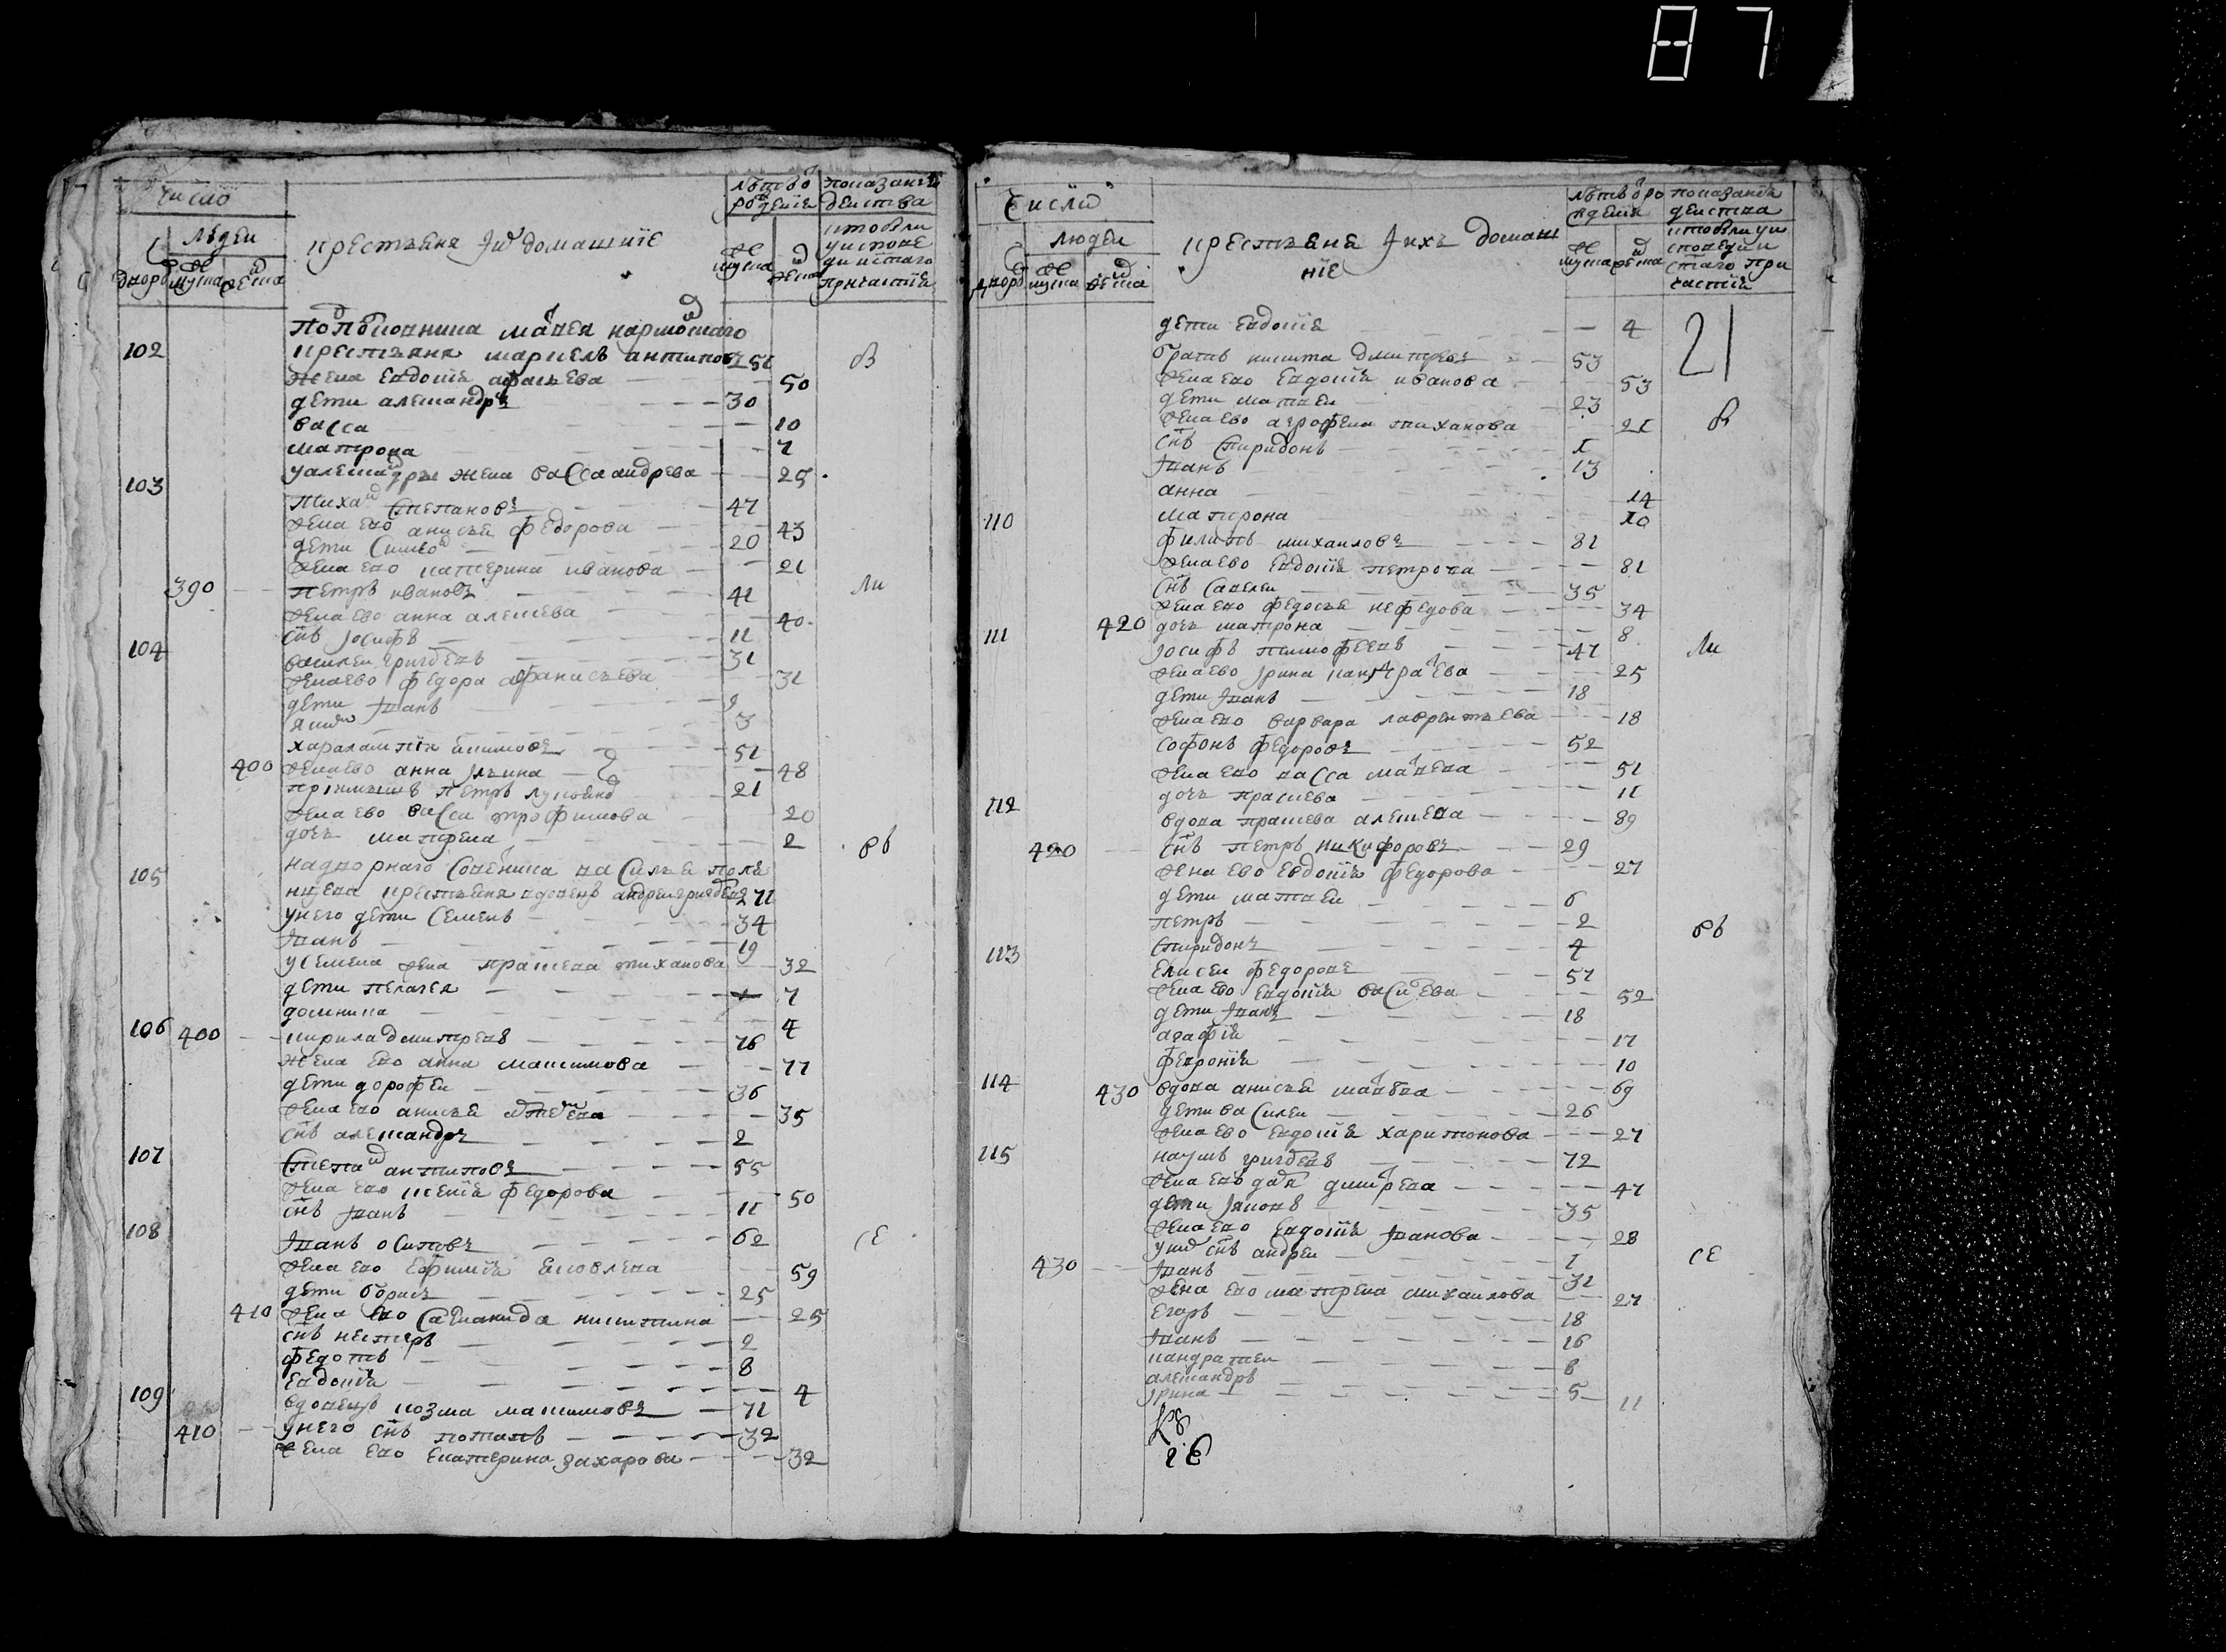 87
Число
людей
дворов
мужска
женска
крестьяне и их домашние
лѣтъ от рождения
мужска
женска
показание действа
кто были у исповеди и святаго причастия
подполковника матвея кармоцкаго
102 крестьяне маркелъ антиповъ 51 в
жена евдокия афанасьева 50
дети александръ 30
васса 10
матрона 7
у александры жена васса андреева 25
103 михаил степановъ 47
жена ево анисья федорова 43
дети симеон 20
жена ево катерина иванова 21
390 петръ ивановъ 41 ли
жена ево анна алексеева 40
снъ иосифъ 11
104 василеи григоревъ 31
жена ево федора афанасьева 31
дети иванъ 9
яким 3
харалампия екимовъ 51
400 жена ево анна ильина 48
приимышъ петръ 21
жена ево васса трофимова 20
дочь матрена 2 вь
надворнаго советника василья
105 крестьяня вдовецъ андреи григоревъ 71
у него дети семенъ 34
иванъ 19
у семена жена прасковья тиханова 32
дети пелагея 7
домника 4
106 400 кирила дмитревъ 76
жена ево анна максимова 77
дети дорофеи 36
жена ево анисья 35
снъ александръ 2
107 степан антиповъ 55
жена ево ксения федорова 50
снъ иванъ 11
108 иванъ осиповъ 62 се
жена ево ефимия яковлева 59
дети борисъ 25
410 жена ево никитина 25
снъ нестеръ 2
федотъ 8
евдокия 4
109 вдовецъ козма максимовъ 71
410 у него снъ потапъ 32
жена ево екатерина захарова 32
Число
людей
дворов
мужска
женска
крестьяне и ихъ домашние
лѣтъ от рождения
мужска
женска
показание действа
кто были у исповеди и святаго причастия
21
дети евдокия 4
братъ никита дмитревъ 53
жена ево евдокия иванова 53
дети матвеи 23
жена ево агрофена тиханова 21 в
снъ спиридонъ 1
иванъ 13
анна 14
матрона 10
110 филипъ михаиловъ 81
жена ево евдокия петрова 81
снъ савелеи 35
жена ево федосья нефедова 34
420 дочь матрона 8
111 иосифъ тимофеевъ 47 ли
жена ево ирина кандратева 25
дети иванъ 18
жена ево варвара лаврентьева 18
софонъ федоровъ 52
жена ево васса матвева 51
дочь праскева 11
112 вдова праскева алексева 89
420 снъ петръ никифоровъ 29
жена ево евдокия федорова 27
дети матвеи 6
петръ 2 вь
спиридонъ 4
113 елисеи федоровъ 57
жена ево евдокия василева 52
дети иванъ 18
агафия 17
феврония 10
114 430 вдова анисья матвева 69
дети василеи 26
жена ево евдокия харитонова 27
115 наумъ григоревъ 72
жена ево дмитрева 47
дети яковъ 35
жена ево евдокия иванова 28
у них снъ андреи 1 се
430 иванъ 31
жена ево матрена михаилова 27
егоръ 18
иванъ 16
кандратеи 8
александръ 5
ирина 11